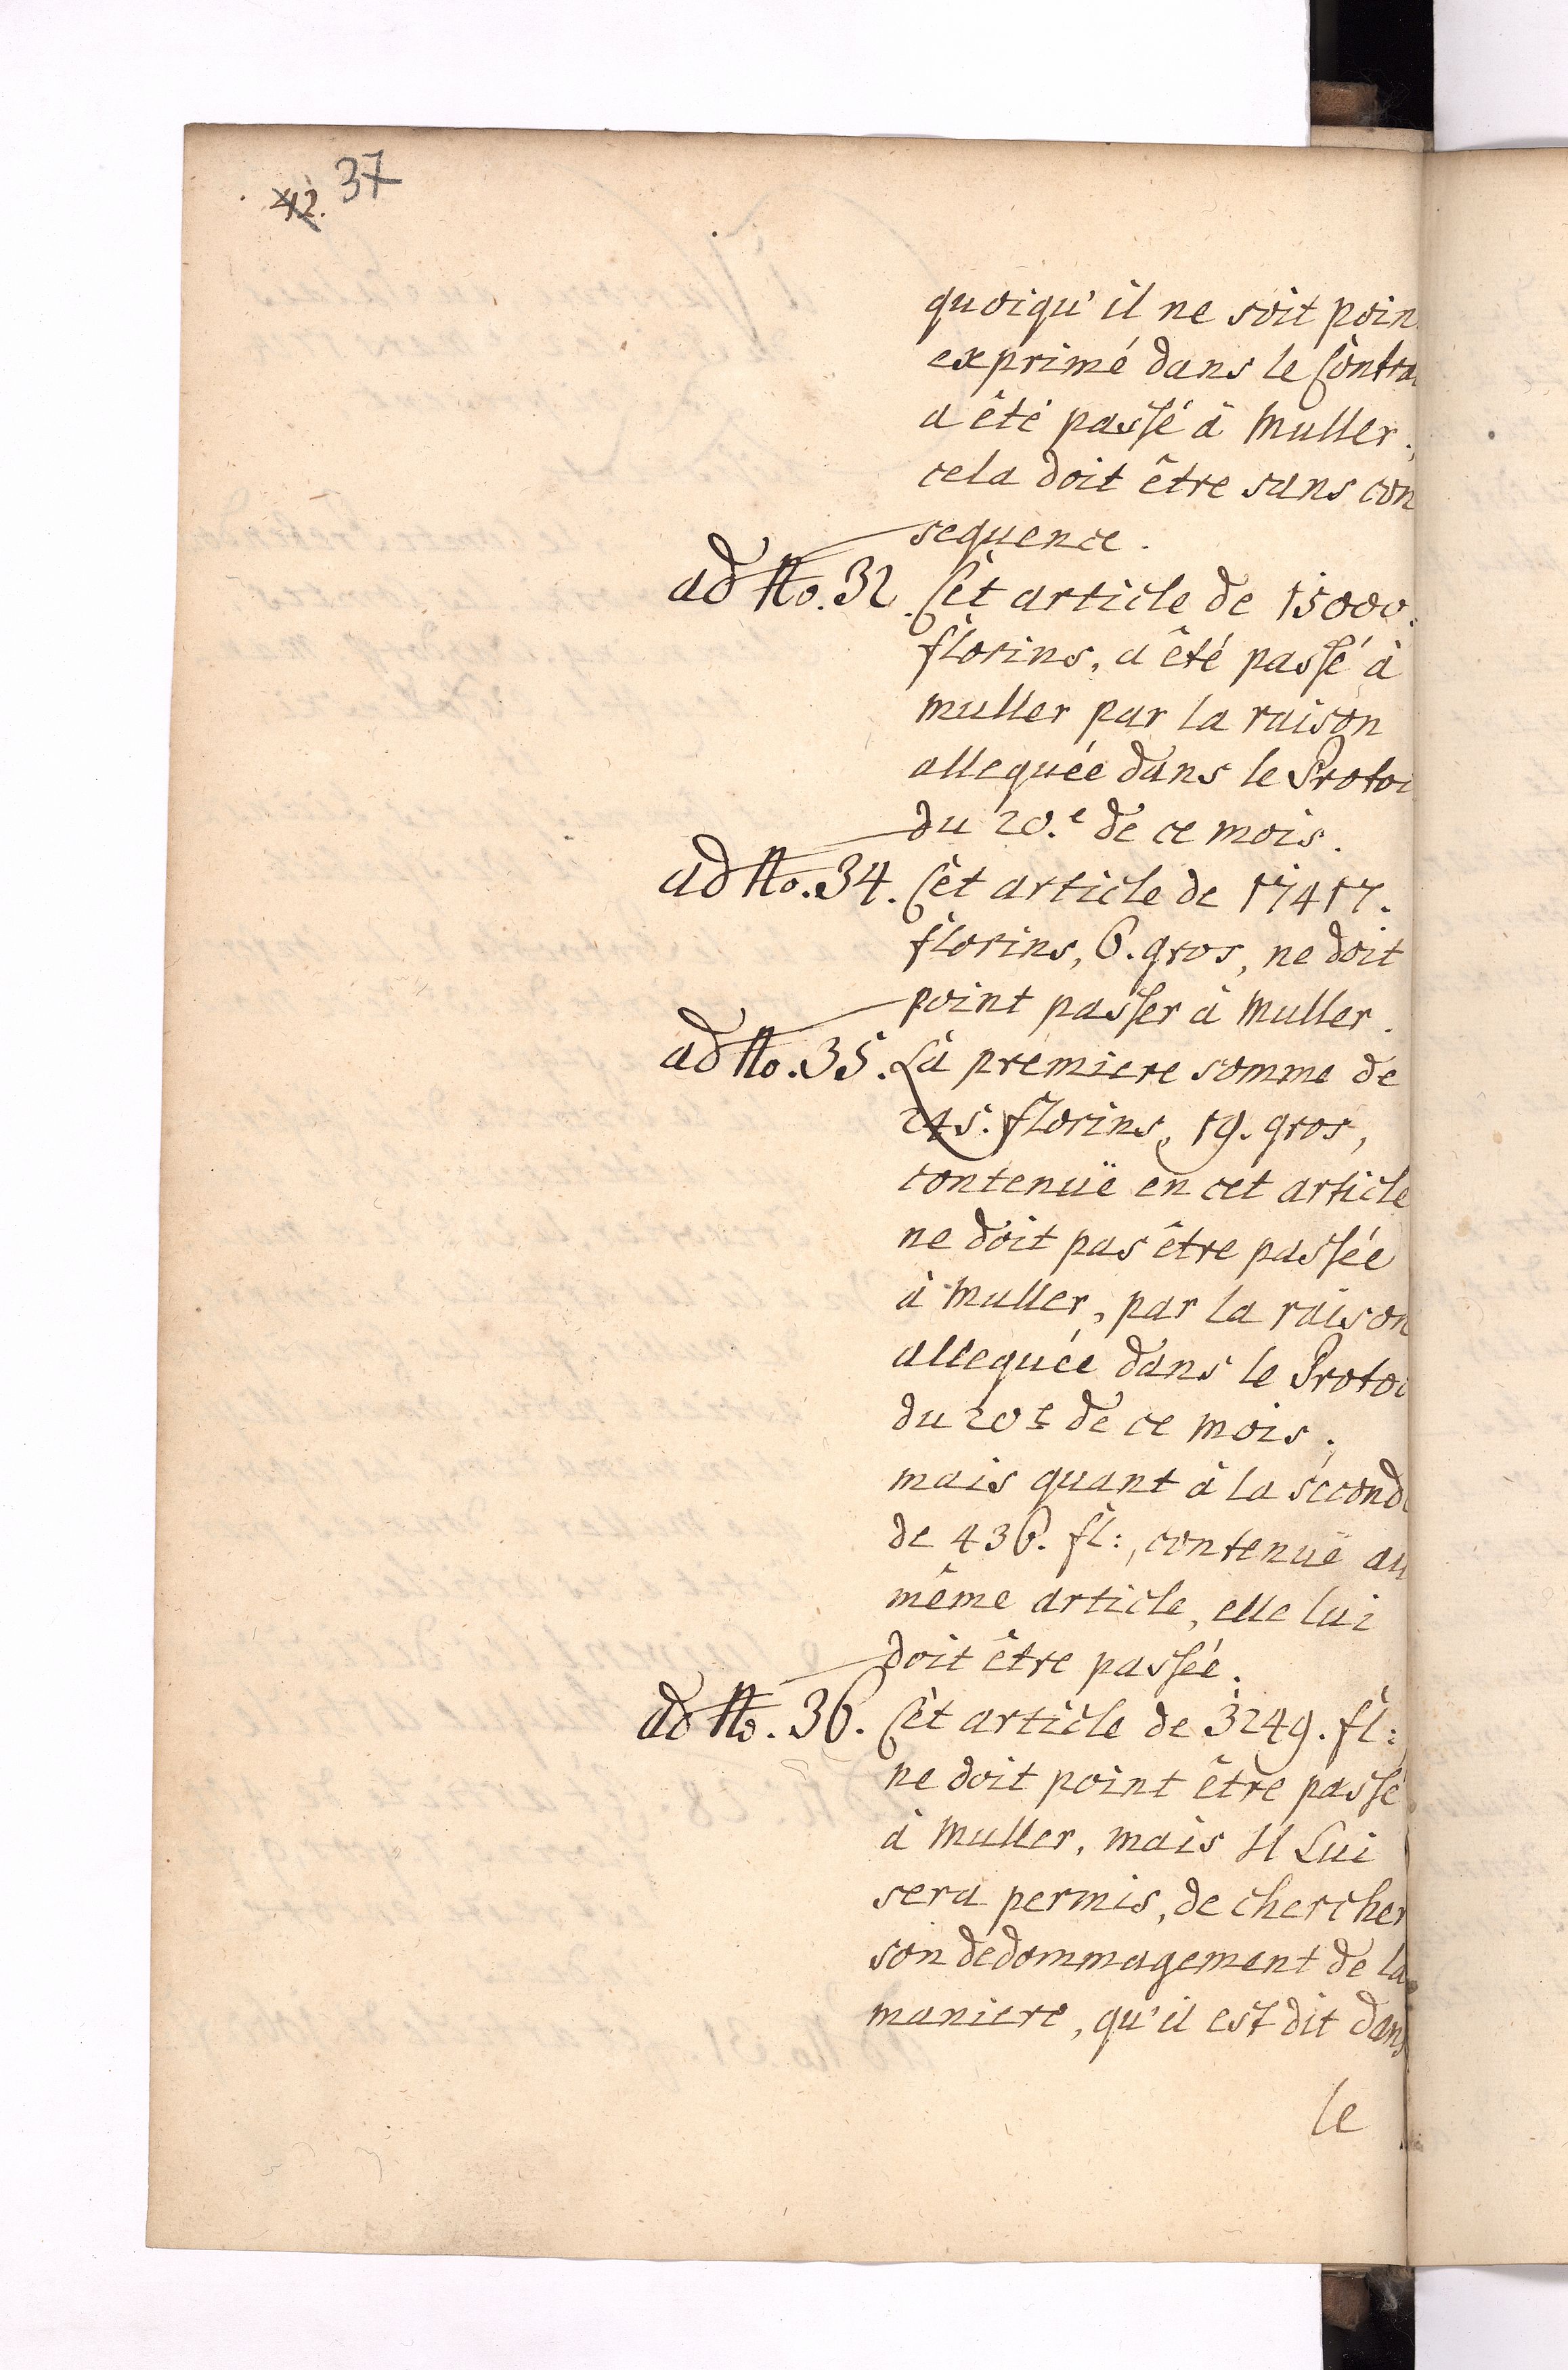 42. 37
quoiqu'il ne soit poin
exprimé dans le Contra
a êté passé â Muller;
cela doit être sans con
sequence.
ad No. 32. Cèt article de 15000.
florins, a êté passé à
Muller par la raison
allequée dans le Protoc
du 20.e de ce mois.
ad No. 34. Cèt article de 17417.
florins, 6. gros, ne doit
point passer à Muller.
ad No. 35. La premiere somme de
245. florins, 19. gros,
contenüe en cet article
ne doit pas être passée
à Muller, par la raison
allequée dans le Protoc
du 20e de ce mois;
mais quant à la second
de 436. fl:, contenüe au
même article, elle lui
doit être passée.
ad No. 36. Cèt article de 3249. fl:
ne doit point être passé
à Muller, mais Il Lui
sera permis, de chercher
son dedommagement de la
maniere, qu'il est dit dans
le